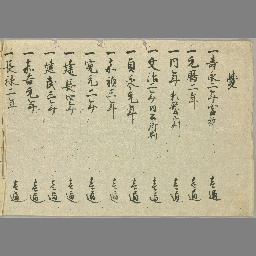 覺
一寿永二年 壱通
一元暦二年 壱通
一同年 壱通
一文治二年 壱通
一貞永元年 壱通
一嘉禎三年 壱通
一寛元二年 壱通
一建長四年 壱通
一建武三年 壱通
一嘉吉元年 壱通
一長禄二年 壱通